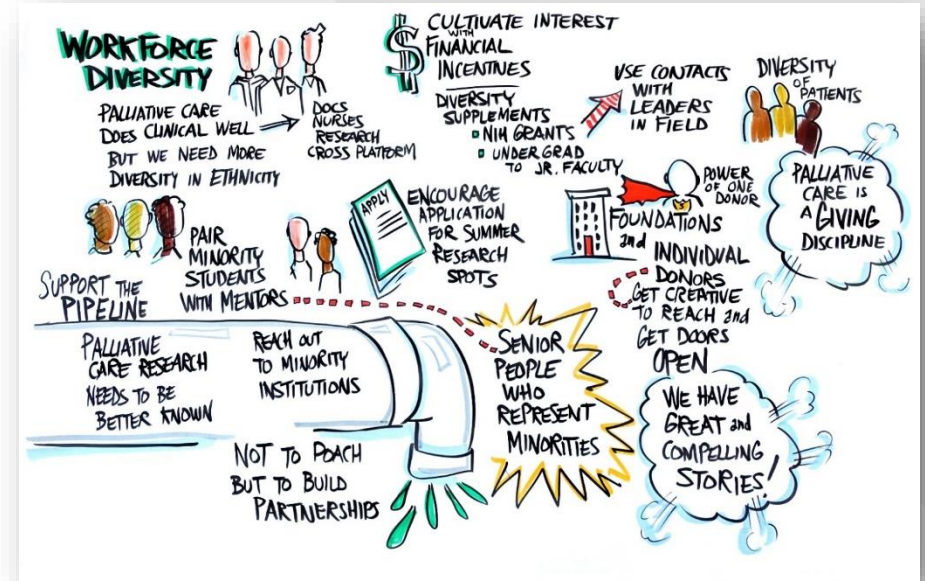 WORKFORCE
DIVERSITY
PALLIATIVE CARE
DOES CLINICAL WELL
BUT WE NEED MORE
DIVERSITY IN ETHNICITY
DOCS
NURSES
RESEARCH
CROSS PLATFORM
$
CULTIVATE INTEREST
WITH
FINANCIAL
INCENTIVES
DIVERSITY
SUPPLEMENTS
NIH GRANTS
UNDERGRAD
TO JR. FACULTY
USE CONTACTS
WITH
LEADERS
IN FIELD
DIVERSITY
OF
PATIENTS
PALLIATIVE
CARE IS
A GIVING
DISCIPLINE
PAIR
MINORITY
STUDENTS
WITH MENTORS
APPLY
ENCOURAGE
APPLICATION
FOR SUMMER
RESEARCH
SPOTS
POWER
OF ONE
DONOR
$
FOUNDATIONS
and
INDIVIDUAL
DONORS
GET CREATIVE
TO REACH and
GET DOORS
OPEN
SUPPORT THE
PIPELINE
PALLIATIVE
CARE RESEARCH
NEEDS TO BE
BETTER KNOWN
REACH OUT
TO MINORITY
INSTITUTIONS
NOT TO POACH
BUT TO BUILD
PARTNERSHIPS
SENIOR
PEOPLE
WHO
REPRESENT
MINORITIES
WE HAVE
GREAT and
COMPELLING
STORIES!